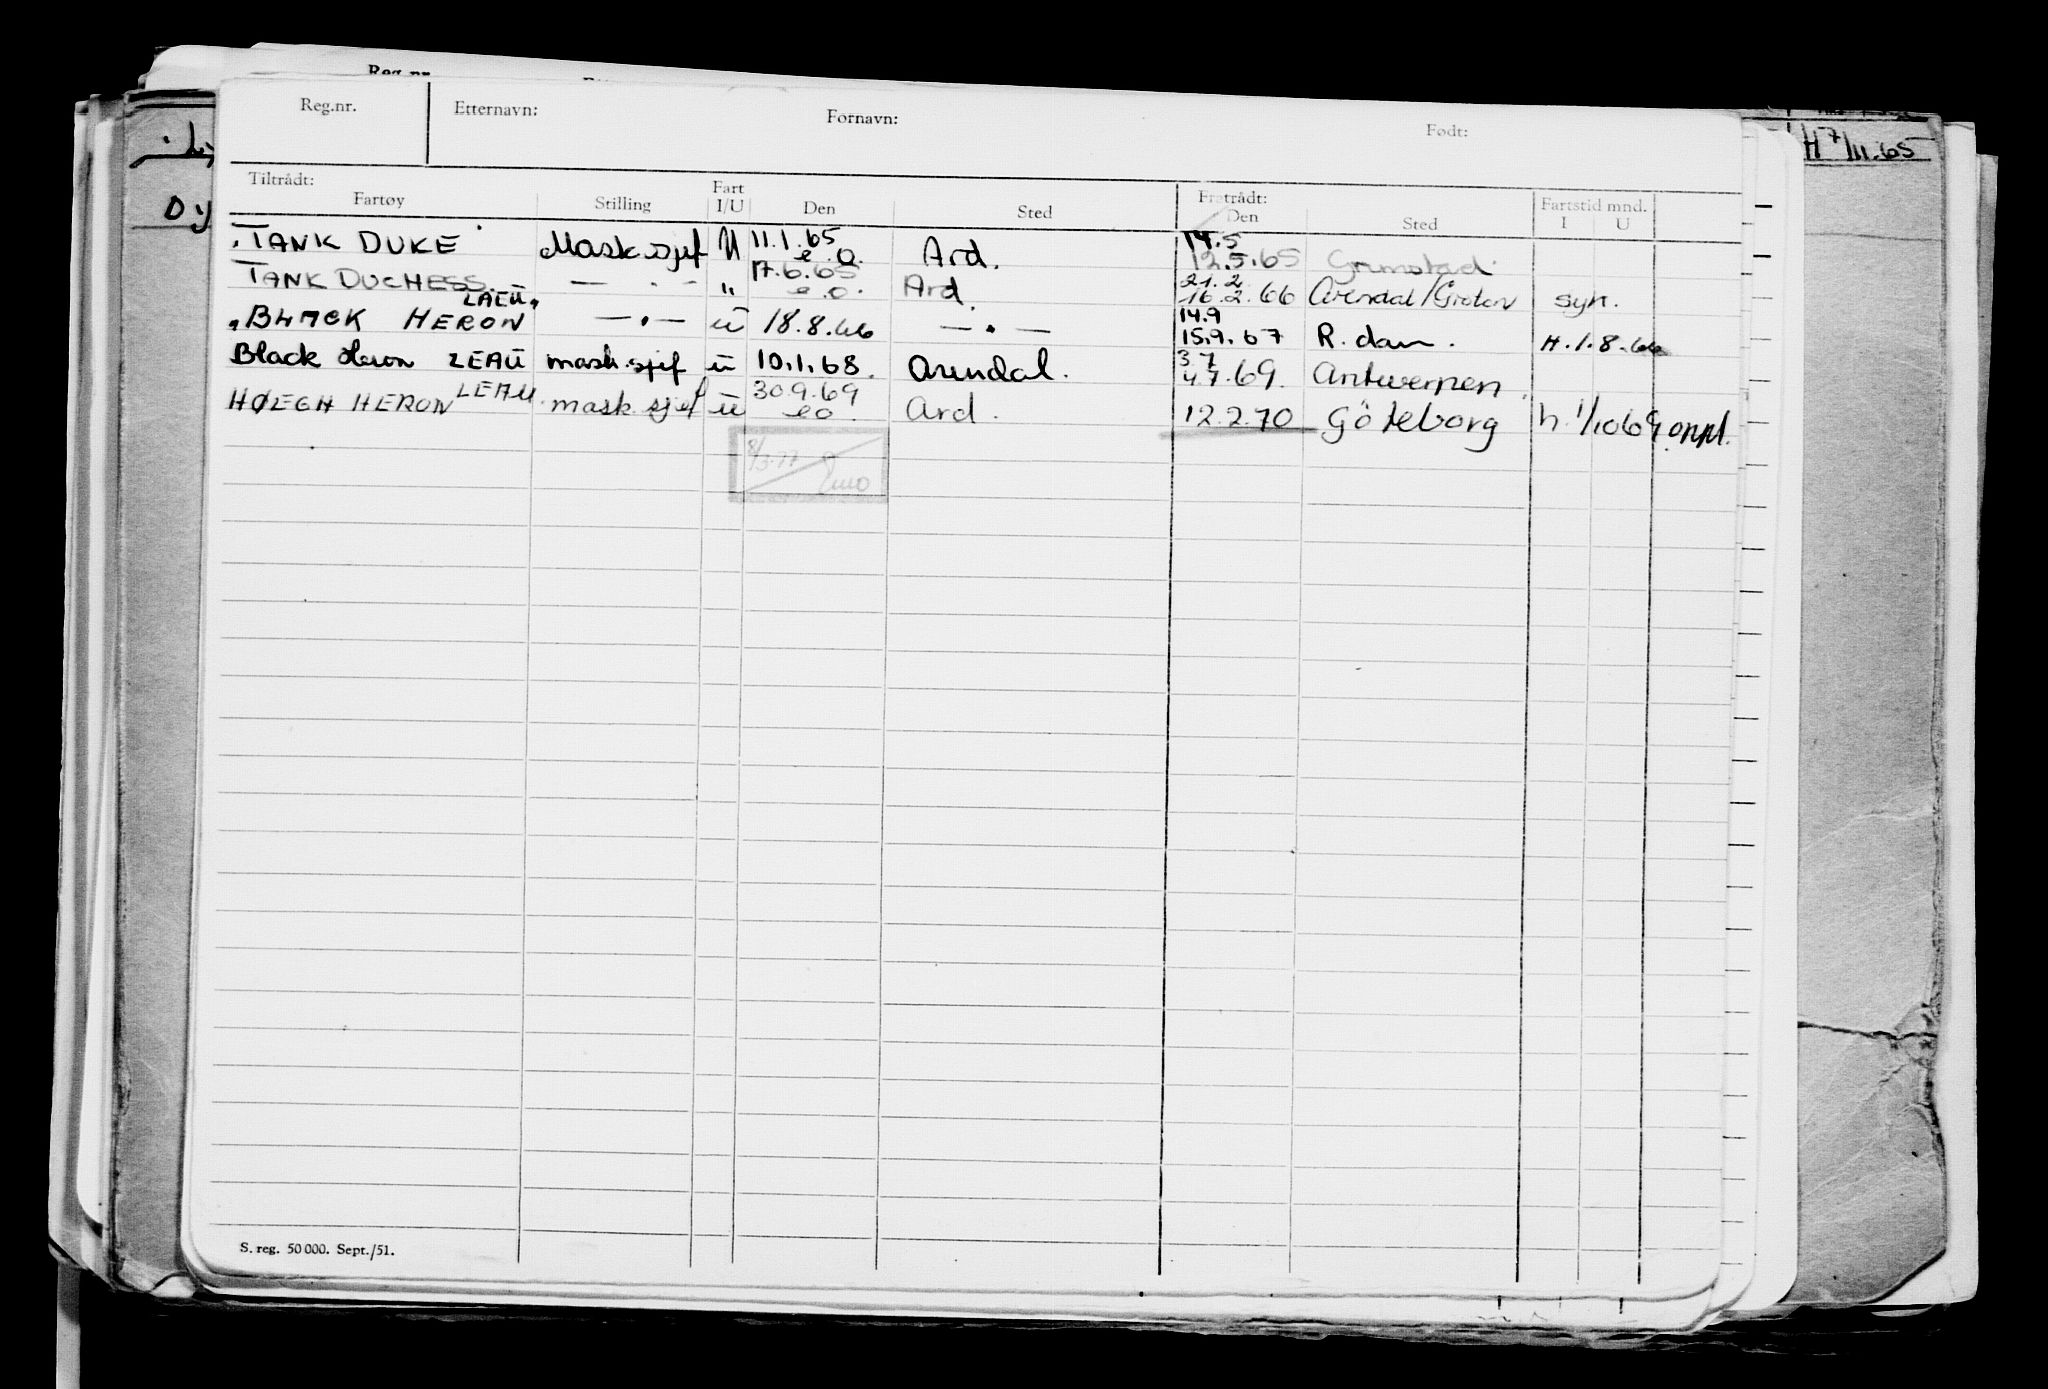 Reg.nr.
Reg.nr. Etternavn: Fornavn: Født:
H 7/11.65
Tiltrådt: Fratrådt:
Fartøy Stilling Fart I/U Den Sted Den Sted Fartstid mnd. I U
"TANK DUKE" Mask.sjef U 11.1.65 e.o. Ard. 14.5 12.5.65 Grimstad
TANK DUCHESS — . - " 17.6.65 e.o. Ard. 21.2 16.2.66 Arendal/Groton syk.
"BLACK HERON LAEU" — . — u 18.8.66 — . — 14.9 15.9.67 R.dam. H.1.8.66
Black Heron LEAU mask.sjef u 10.1.68. Arendal. 3.7 4.7.69. Antwerpen.
HØEGH HERON LEAU mask.sjef u 30.9.69 eo. Ard. 12.2.70 Göteborg h. 1/10 69 oppl.
8/3.77
S. reg. 50 000. Sept./51.